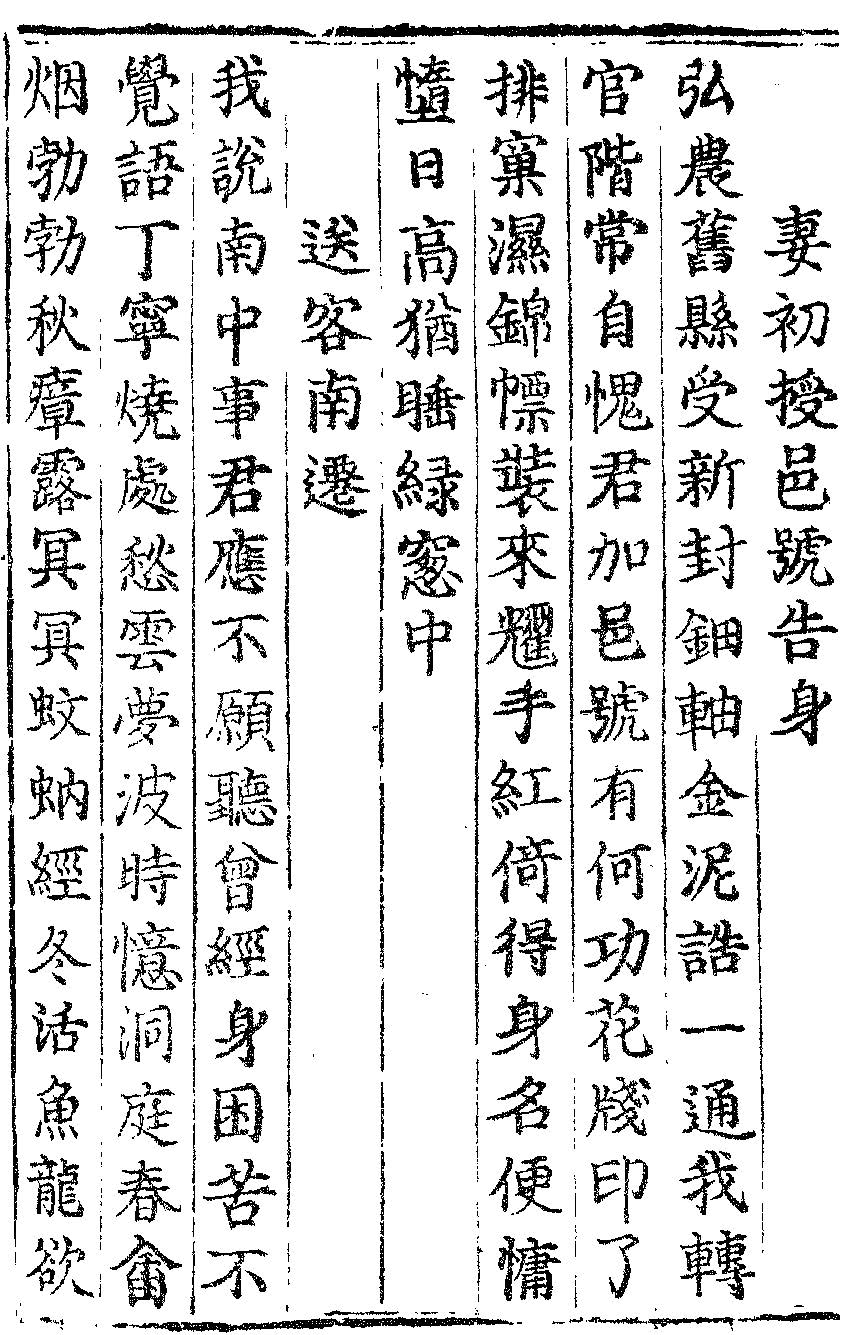 妻初授邑號告身
弘農舊縣受新封鈿軸金泥誥一通我轉
官階常自愧君加邑號有何功花牋印了
排窠濕錦褾裝來耀手紅倚得身名便慵
墯日高猶睡緑窻中
送客南遷
我說南中事君應不願聽曾經身困苦不
覺語丁寧燒處愁雲夢波時憶洞庭春畬
烟勃勃秋瘴露冥冥蚊蚋經冬活魚龍欲